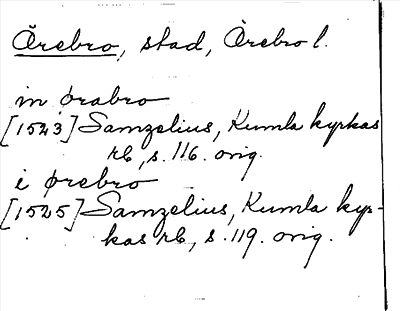 Örebro, stad, Örebro l.
in ørabro
[1523] Samzelius, Kumla kyrkas
rb, s. 116. orig.
i ørebro
[1525] Samzelius, Kumla kyr-
kas rb, s. 119. orig.